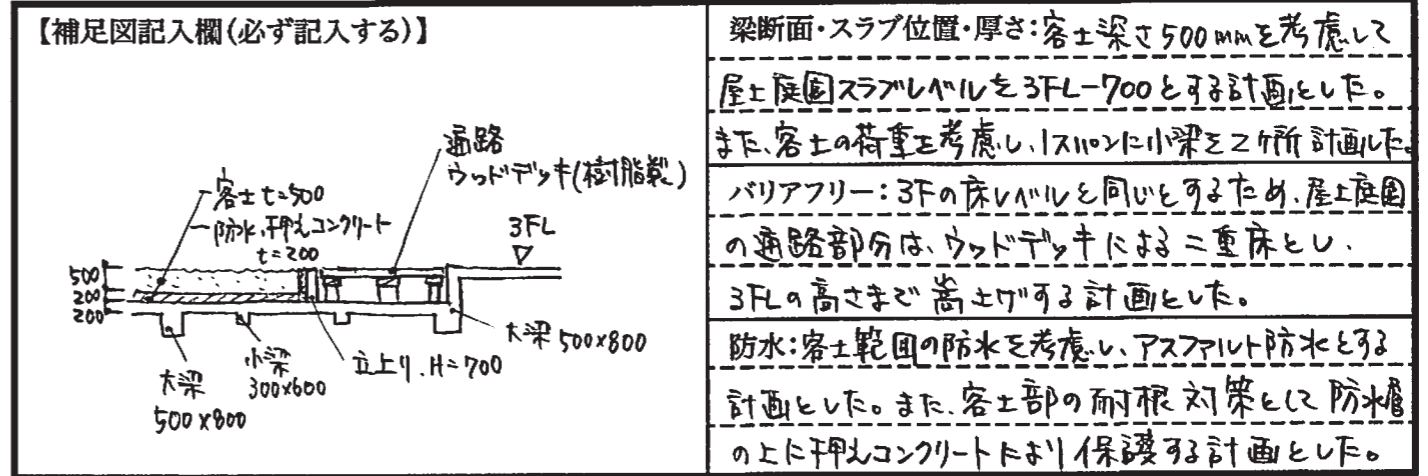 【補足図記入欄(必ず記入する)】
通路
ウッドデッキ(樹脂製)
客土 t=500
防水、押えコンクリート
t=200
3FL
500
200
200
大梁 500×800
立上り、H=700
小梁
300×600
大梁
500×800
梁断面・スラブ位置・厚さ:客土深さ500mmを考慮して
屋上庭園スラブレベルを3FL-700とする計画とした。
また、客土の荷重を考慮し、1スパンに小梁を2ヶ所計画した。
バリアフリー:3Fの床レベルと同じとするため、屋上庭園
の通路部分は、ウッドデッキによる二重床とし、
3FLの高さまで嵩上げする計画とした。
防水:客土範囲の防水を考慮し、アスファルト防水とする
計画とした。また、客土部の耐根対策として防水層
の上に押えコンクリートにより保護する計画とした。